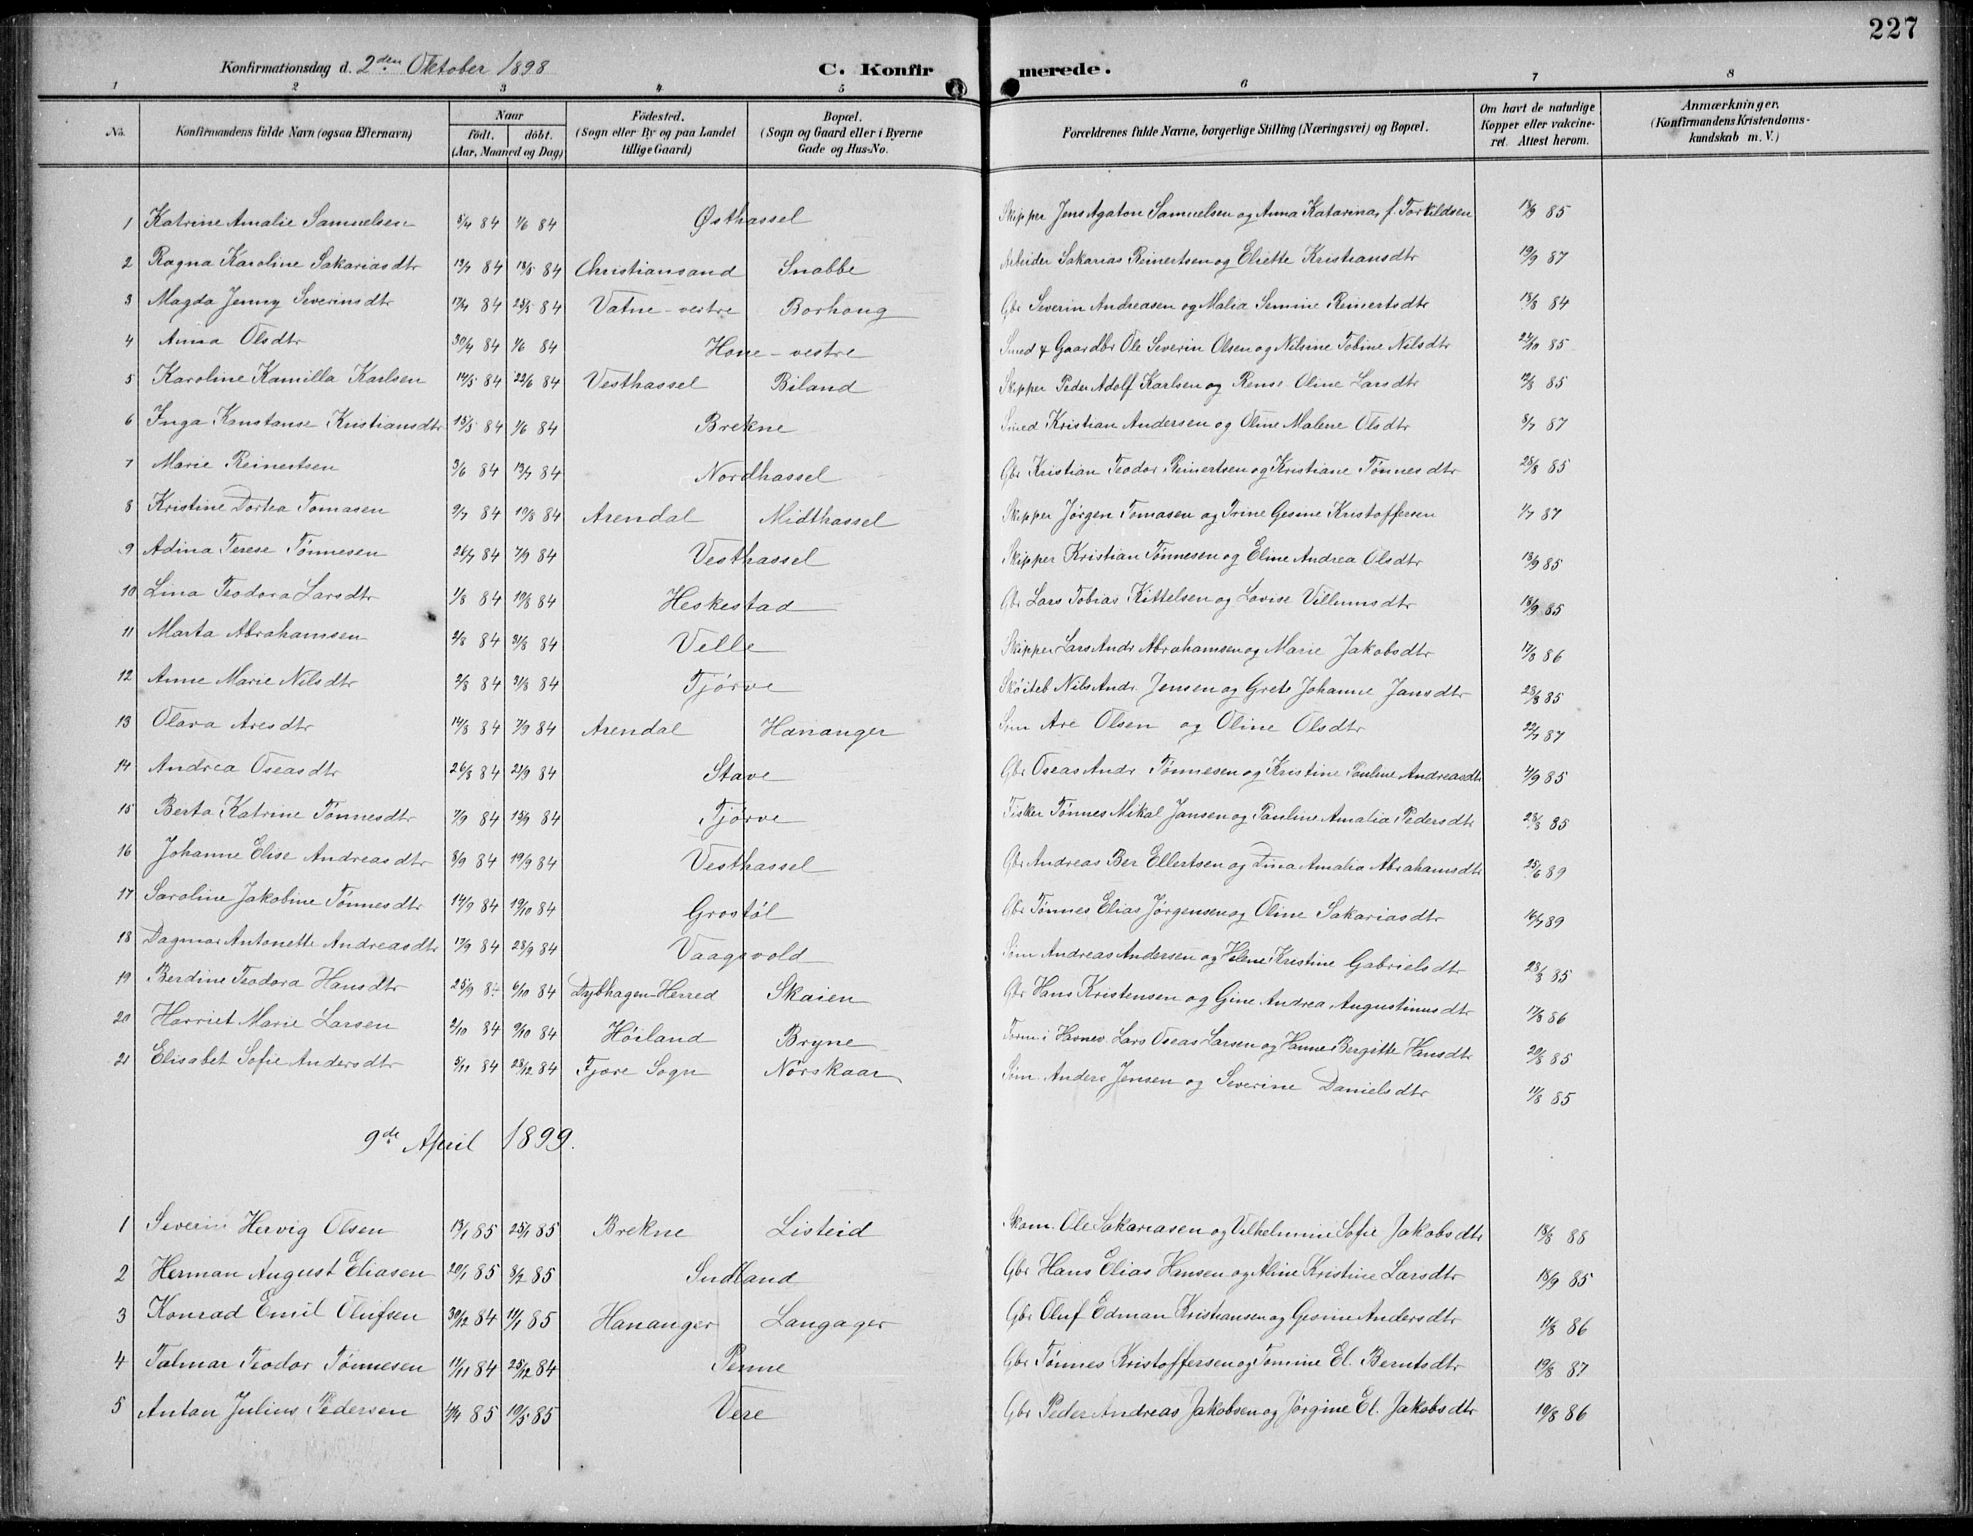 227
Konfirmationsdag d. 2den Oktober 1898
C. Konfirmerede.
1 2 3 4 5 6 7 8
No. Konfirmandens fulde Navn (ogsaa Efternavn) Naar født. døbt. (Aar, Maaned og Dag) Födested. (Sogn eller By og paa Landet tillige Gaard) Bopæl. (Sogn og Gaard eller i Byerne Gade og Hus-No. Forældrenes fulde Navne, borgerlige Stilling (Næringsvei) og Bopæl. Om havt de naturlige Kopper eller vakcineret. Attest herom. Anmærkninger. (Konfirmandens Kristendomskundskab m. V.)
1 Katrine Amalie Samuelsen 5/4 84 1/6 84 Østhassel Skipper Jens Agaton Samuelsen og Anna Katarina f. Torkildsen 18/9 85
2 Ragna Karoline Sakariasdtr 13/4 84 18/5 84 Christiansand Snabbe Arbeider Sakarias Reinertsen og Eliette Kristiansdtr 19/9 87
3 Magda Jenny Severinsdtr 17/4 84 25/5 84 Vatne-vestre Borhoug Gbr Severin Andreasen og Malia Semine Reinertsdtr 18/8 84
4 Anna Olsdtr 30/4 84 1/6 84 Hone-vestre Smed & Gaardbr Ole Severin Olsen og Nilsine Tobine Nilsdtr 22/10 85
5 Karoline Kamilla Karlsen 14/5 84 22/6 84 Vesthassel Biland Skipper Peder Adolf Karlsen og Rense Oline Larsdtr 12/8 85
6 Inga Konstanse Kristiansdtr 15/5 84 1/6 84 Brekne Smed Kristian Andersen og Oline Malene Olsdtr 8/7 87
7 Marie Reinertsen 3/6 84 13/7 84 Nordhassel Gbr Kristian Teodor Reinertsen og Kristiane Tønnesdtr 28/8 85
8 Kristine Dortea Tomasen 9/7 84 10/8 84 Arendal Midthassel Skipper Jørgen Tomasen og Trine Gesine Kristoffersen 1/7 87
9 Adina Terese Tønnesen 26/7 84 7/9 84 Vesthassel Skipper Kristian Tønnesen og Eline Andrea Olsdtr 18/9 85
10 Lina Teodora Larsdtr 1/8 84 10/8 84 Heskestad Gbr Lars Tobias Kittelsen og Lovise Villumsdtr 18/9 85
11 Marta Abrahamsen 2/8 84 31/8 84 Velle Skipper Lars Andr Abrahamsen og Marie Jakobsdtr 17/8 86
12 Anne Marie Nilsdtr 2/8 84 31/8 84 Tjørve Skøiteb Nils Andr. Jensen og Grete Johanne Jansdtr 28/8 85
13 Olava Aresdtr 14/8 84 7/9 84 Arendal Hananger Søm Are Olsen og Oline Olsdtr 22/7 87
14 Andrea Oseasdtr 26/8 84 21/9 84 Stave Gbr Oseas Andr Tønnesen og Kristine Pauline Andreasdtr 4/9 85
15 Berta Katrine Tønnesdtr 7/9 84 13/9 84 Tjørve Fisker Tønnes Mikal Jansen og Pauline Amalia Pedersdtr 28/8 85
16 Johanne Elise Andreasdtr 8/9 84 19/9 84 Vesthassel Gbr Andreas Ber Ellertsen og Dina Amalia Abrahamsdtr 25/6 89
17 Saroline Jakobine Tønnesdtr 14/9 84 19/10 84 Grostøl Gbr Tønnes Elias Jørgensen og Oline Sakariasdtr 16/7 89
18 Dagmar Antonette Andreasdtr 17/9 84 28/9 84 Vaagsvold Søm Andreas Andersen og Helene Kristine Gabrielsdtr 28/8 85
19 Berdine Teodora Hansdtr 25/9 84 6/10 84 Dybhagen-Herred Skaien Gbr Hans Kristensen og Gine Andrea Augustinusdtr 17/8 86
20 Harriet Marie Larsen 2/10 84 9/10 84 Høiland Bryne Form i Havnev. Lars Oseas Larsen og Hanne Bergitte Hansdtr 20/8 85
21 Elisabet Sofie Andersdtr 5/11 84 28/12 84 Fjære Sogn Nørskaar Søm. Anders Jensen og Severine Danielsdtr 11/8 85
9de April 1899.
1 Severin Hervig Olsen 13/1 85 25/1 85 Brekne Listeid Skom. Ole Sakariasen og Vilhelmine Sofie Jakobsdtr 18/8 88
2 Herman August Eliasen 20/1 85 8/2 85 Sudland Gbr Hans Elias Hansen og Aline Kristine Larsdtr 18/9 85
3 Konrad Emil Olufsen 30/12 84 11/1 85 Hananger Langager Gbr Oluf Edman Kristiansen og Gesine Andersdtr 17/8 86
4 Talmar Teodor Tønnesen 17/11 84 25/12 84 Penne Gbr Tønnes Kristoffersen og Tomine El. Berntsdtr 19/8 87
5 Antan Julius Pedersen 4/4 85 10/5 85 Vere Gbr Peder Andreas Jakobsen og Jørgine El. Jakobsdtr 19/8 86